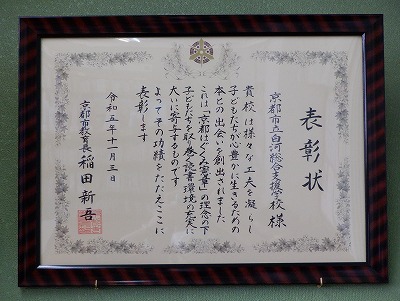 表彰状
京都市立白河総合支援学校 様
貴校は様々な工夫を凝らし
子どもたちが心豊かに生きるための
本との出会いを創出されました
これは「京都はぐくみ憲章」の理念の下
子どもたちを取り巻く読書環境の充実に
大いに寄与するものです
よってその功績をたたえここに
表彰します
令和五年十一月三日
京都市教育長 稲田新吾